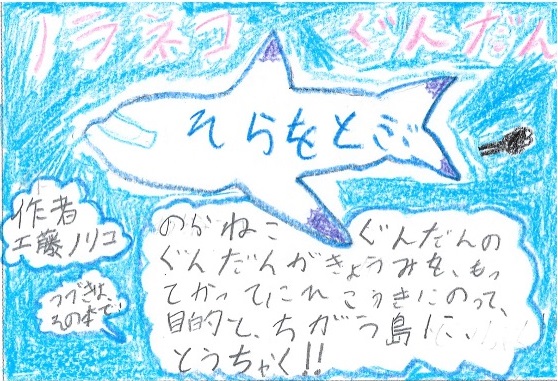 ノラネコ ぐんだん
そらをとぶ
作者
工藤ノリコ
のらねこ ぐんだんの
ぐんだんがきょうみを、もっ
てかってにれ こうきにのって、
目的と、ちがう島に、
とうちゃく!!
つづきは、
その本で、